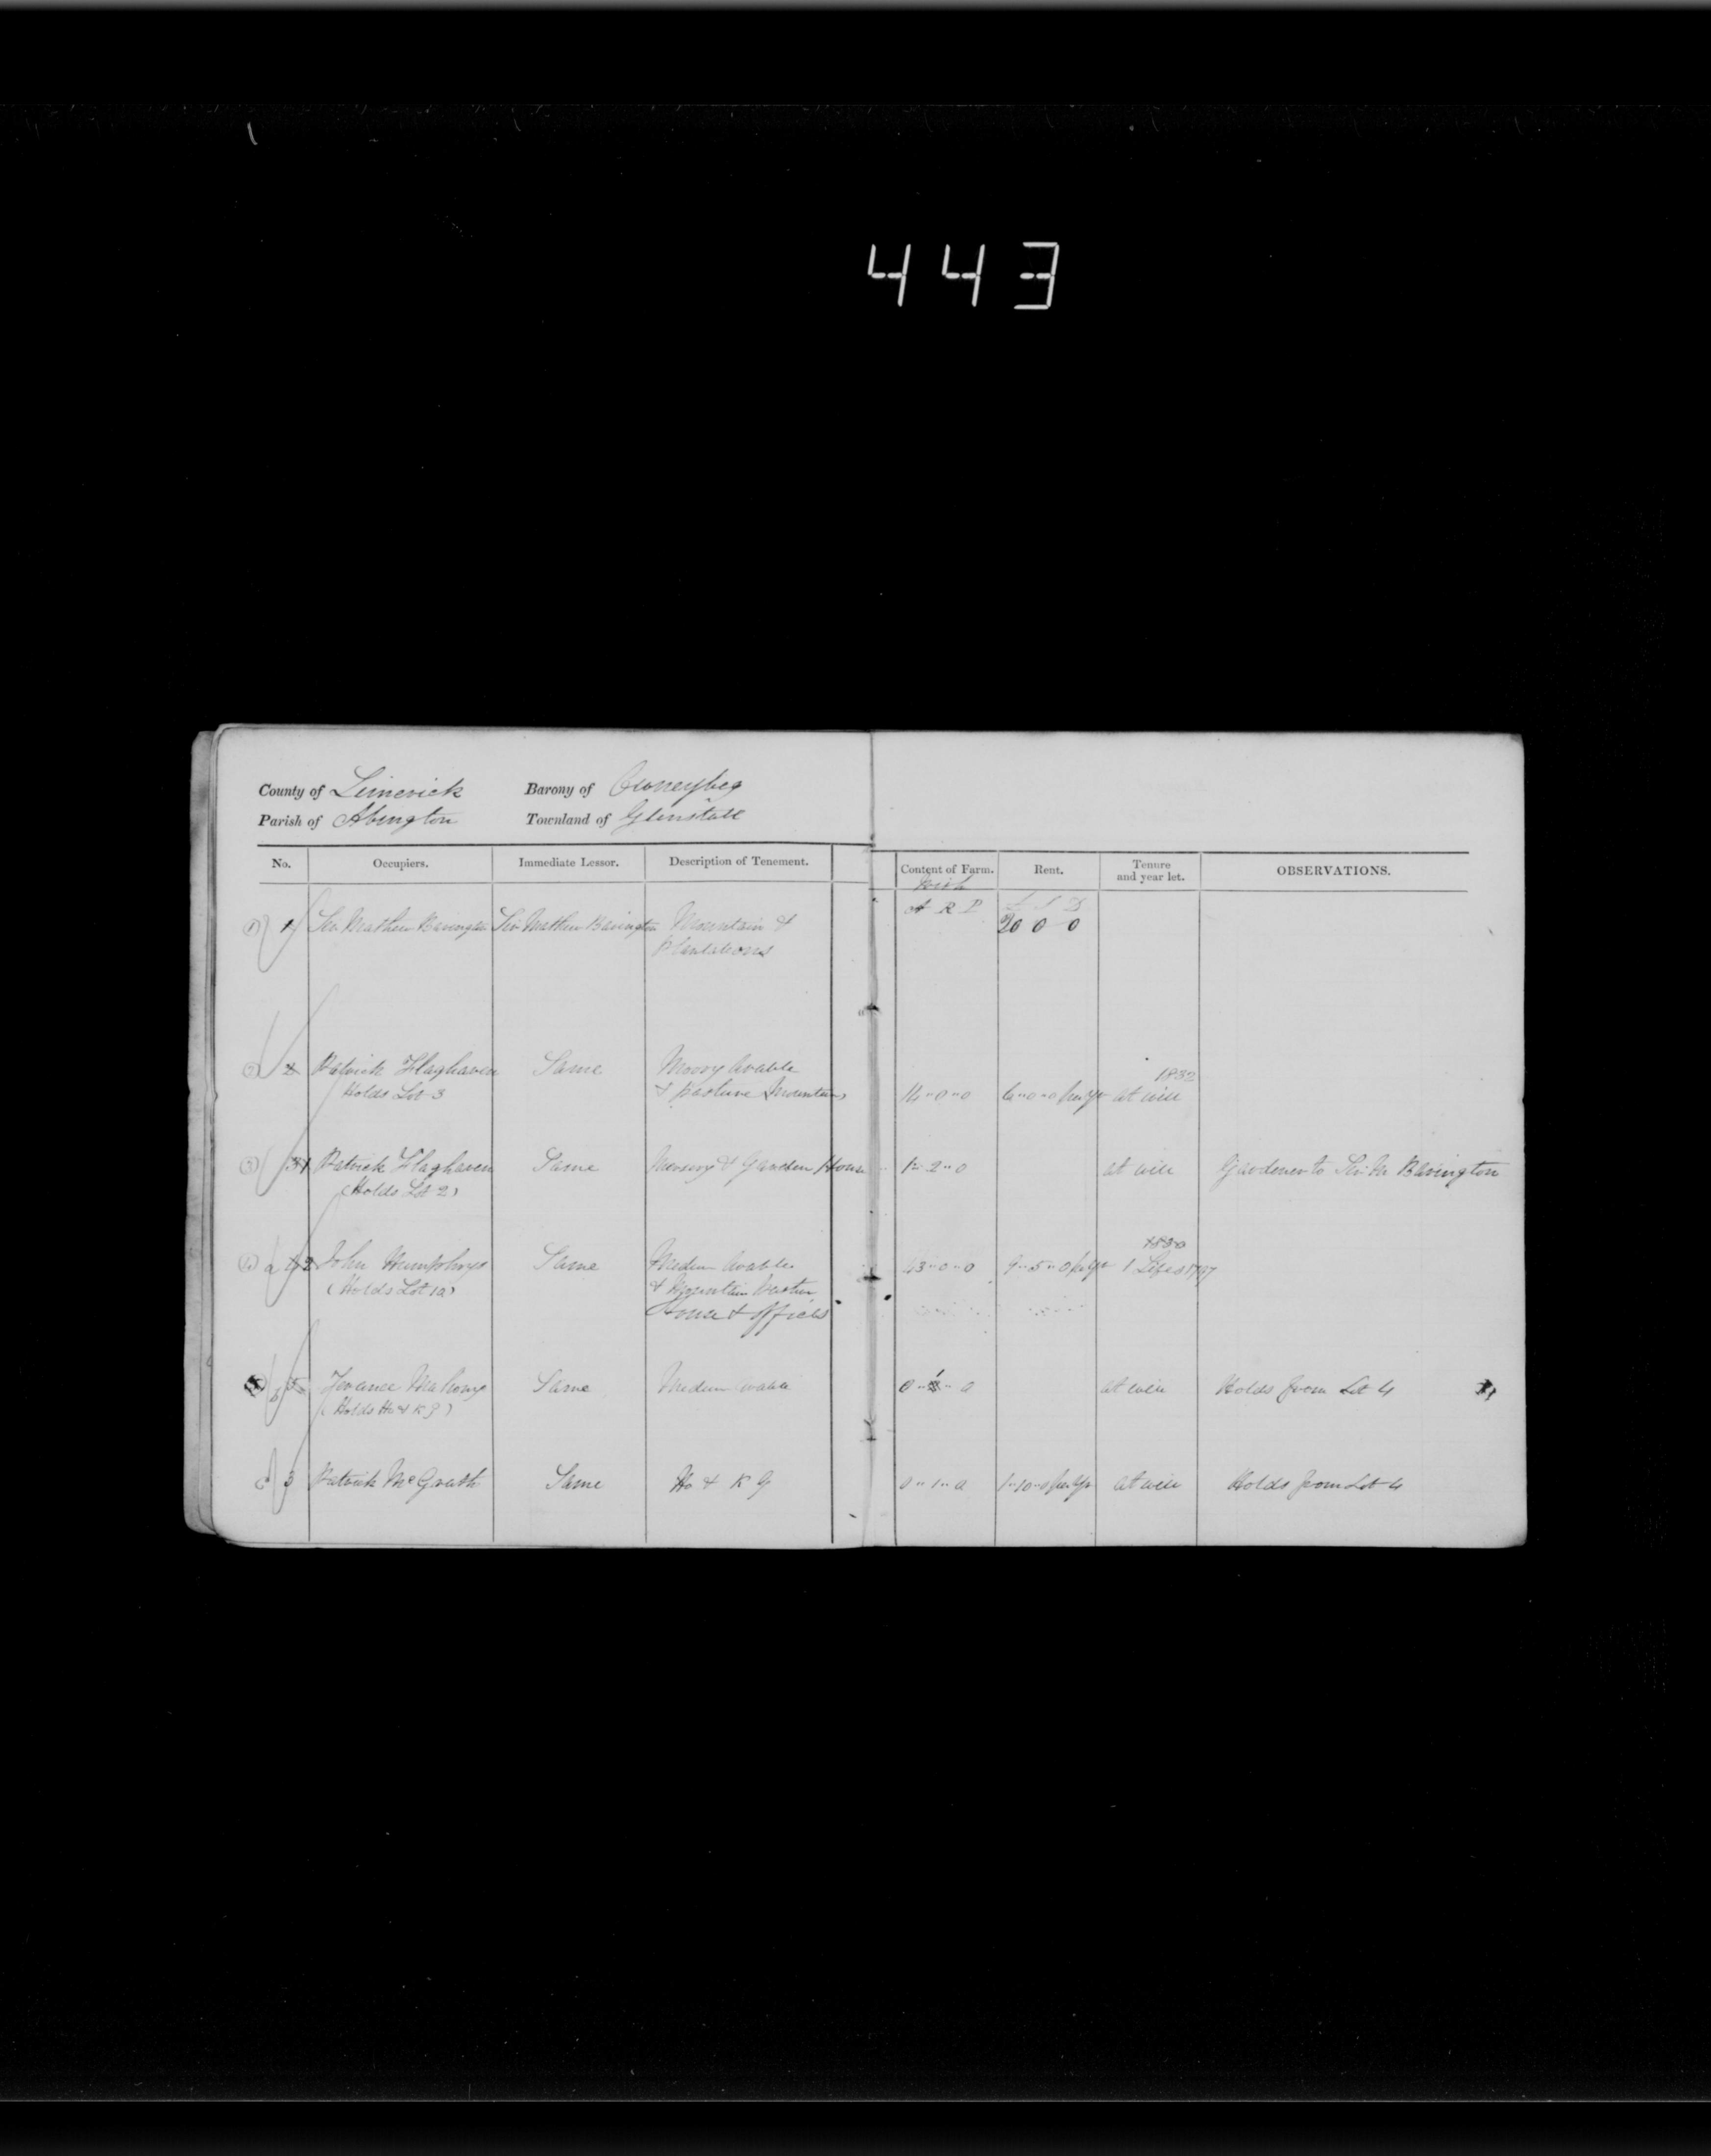 443
County of Limerick Barony of Owneybeg
Parish of Abington Townland of Glinstall
No. Occupiers. Immediate Lessor. Description of Tenement. Content of Farm. Rent. Tenure and year let. OBSERVATIONS.
Irish
A R P £ S D
1 1 Sir Mathew Barington Sir Mathew Barington Mountain & 20 0 0
plantations
2 2 Patrick Flaghaven Same Moory Arable 1832
Holds Lot 3 & pasture Mountain 14..0..0 6..0..0 per yr at will
3 Patrick Flaghaven Same Nursery & Garden House 1..2..0 at will Gardener to Sir M Barington
(Holds Lot 2)
1830
a John Humphrys Same Medium Arable 43..0..0 9..5..0 per yr 1 Life 1797
(Holds Lot 1a) & Mountain Pasture
House & Offices
b Same Medium Arable at will Holds from Lot 4
(Holds Ho & K G)
c 3 Patrick McGrath Same Ho & K G 0..1..0 1..10..0 per yr at will Holds from Lot 4